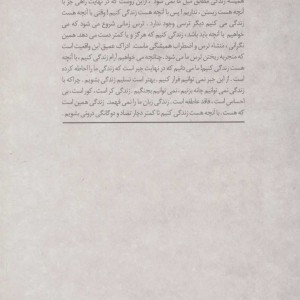 همیشه زندگی مطابق میل ما نمی شود . ازین روست که در نهایت راهی جز با
آنچه هست زیستن ، نداریم ! پس با آنچه هست زندگی کنیم ! وقتی با آنچه هست
زندگی می کنیم دیگر ترسی وجود ندارد . ترس زمانی شروع می شود که می
خواهیم با آنچه باید باشد ، زندگی کنیم که هرگز و یا کمتر دست می دهد. همین
نگرانی ، منشاء ترس و اضطراب همیشگی ماست . ادراک عمیق این واقعیت است
که منجر به ریختن ترس ما می شود . چنانچه می خواهیم آرام و آزاد
زندگی کنیم! ما می دانیم که در نهایت جبر است که زندگی ما را احاطه کرده
است . از این جبر نمی توانیم فرار کنیم . بهتر است تسلیم زندگی بشویم . چراکه با
زندگی نمی توانیم چانه بزنیم ، نمی توانیم بجنگیم . زندگی کر است ، کور است ، بی
احساس است ، فاقد عاطفه است . زندگی زبان ما را نمی فهمد . زندگی همین است
که هست . با آنچه هست زندگی کنیم تا کمتر دچار تضاد و دوگانگی درونی بشویم .